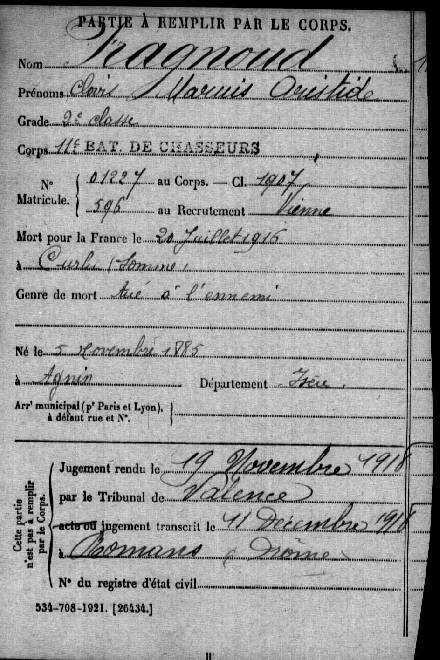 PARTIE À REMPLIR PAR LE CORPS.
Nom Fragnoud
Prénoms Clovis Marius Aristide
Grade 2e classe
Corps 11e BAT. DE CHASSEURS
N° Matricule. 01227 au Corps. — Cl. 1907
596 au Recrutement Vienne
Mort pour la France le 20 Juillet 1916
à Curlu (Somme)
Genre de mort tué à l'ennemi
Né le 5 Novembre 1885
à Agnin Département Isère
Arr' municipal (p' Paris et Lyon),
à défaut rue et N°.
Cette partie n'est pas à remplir par le Corps.
Jugement rendu le 19 Novembre 1918
par le Tribunal de Valence
acte ou jugement transcrit le 11 Décembre 1918
à Romans (Drôme)
N° du registre d'état civil
534-708-1921. [26434.]